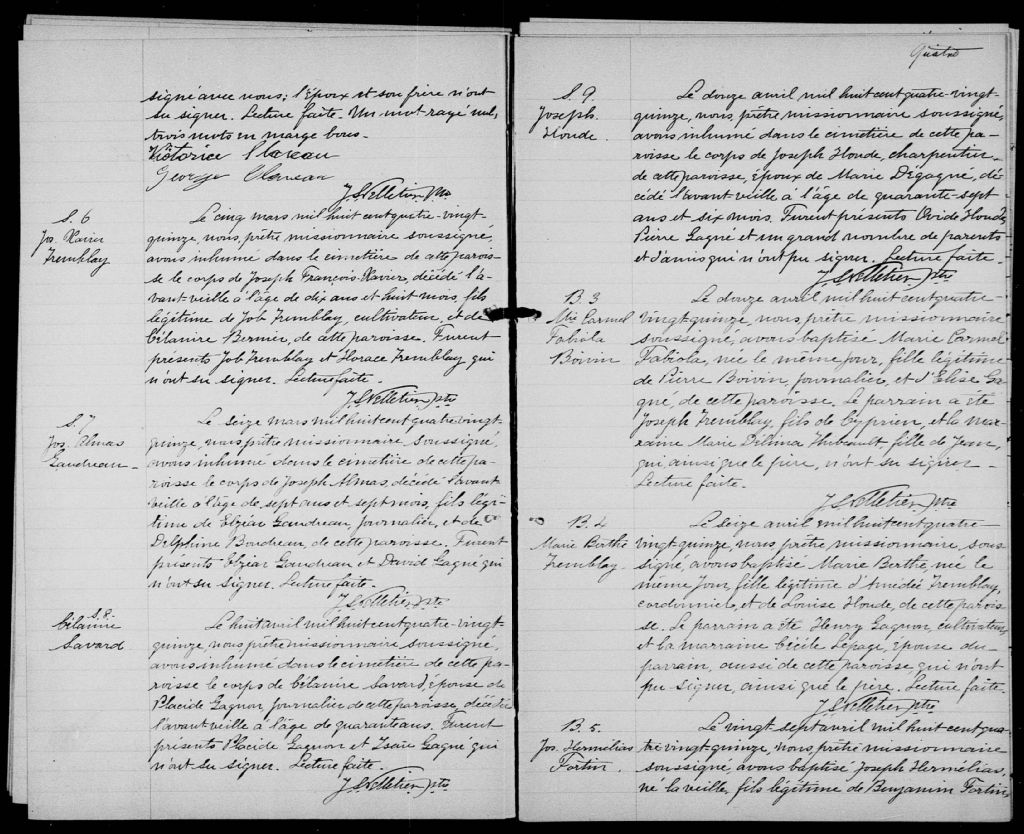 signé avec nous; l'époux et son frère n'ont
su signer. Lecture faite. Un mot rayé nul,
trois mots en marge bons.
Victorice
George
J. S. Pelletier, Ptre
S. 6
Jos. Xavier
Tremblay
Le cinq mars mil huit cent quatre-vingt-
quinze, nous, prêtre missionnaire soussigné,
avons inhumé dans le cimetière de cette parois-
se le corps de Joseph François-Xavier, décédé l'a-
vant-veille à l'âge de dix ans et huit mois, fils
légitime de Job Tremblay, cultivateur, et de
Célanire Bernier, de cette paroisse. Furent
présents Job Tremblay et Horace Tremblay qui
n'ont su signer. Lecture faite.
J. S. Pelletier, Ptre
S. 7
Jos. Almas
Gaudreau
Le seize mars mil huit cent quatre-vingt-
quinze, nous, prêtre missionnaire, soussigné,
avons inhumé dans le cimetière de cette pa-
roisse le corps de Joseph Almas, décédé l'avant
veille à l'âge de sept ans et sept mois, fils légi-
time de Elzéar Gaudreau, journalier, et de
Delphine Boudreau, de cette paroisse. Furent
présents Elzéar Gaudreau et David Gagné qui
n'ont su signer. Lecture faite.
J. S. Pelletier, Ptre
S. 8.
Célanire
Savard
Le huit avril mil huit cent quatre-vingt-
quinze, nous, prêtre missionnaire soussigné,
avons inhumé dans le cimetière de cette pa-
roisse le corps de Célanire Savard, épouse de
Placide Gagnon, journalier de cette paroisse, décédée
l'avant veille à l'âge de quarante ans. Furent
présents Placide Gagnon et Isaïe Gagné qui
n'ont su signer. Lecture faite.
J. S. Pelletier, Ptre
Quatre
S. 9
Joseph
Houde.
Le douze avril mil huit cent quatre-vingt-
quinze, nous, prêtre missionnaire soussigné,
avons inhumé dans le cimetière de cette pa-
roisse le corps de Joseph Houde, charpentier
de cette paroisse, époux de Marie Dégagné, dé-
cédé l'avant-veille à l'âge de quarante-sept
ans et six mois. Furent présents Ovide Houde,
Pierre Gagné et un grand nombre de parents
et d'amis qui n'ont pu signer. Lecture faite.
J. S. Pelletier, Ptre
B. 3
Mie Carmel
Fabiola
Boivin
Le douze avril mil huit cent quatre-
vingt-quinze, nous, prêtre missionnaire
soussigné, avons baptisé Marie Carmel
Fabiola, née le même jour, fille légitime
de Pierre Boivin, journalier, et d'Elise Ga-
gné, de cette paroisse. Le parrain a été
Joseph Tremblay, fils de Cyprien, et la mar-
raine Marie Delima Thibeault fille de Jean,
qui ainsi que le père, n'ont su signer.
Lecture faite.
J. S. Pelletier, Ptre
B. 4
Marie Berthe
Tremblay
Le seize avril mil huit cent quatre-
vingt-quinze, nous, prêtre missionnaire, sous-
signé, avons baptisé Marie Berthe née le
même jour, fille légitime d'Amédée Tremblay,
cordonnier, et de Louise Houde, de cette parois-
se. Le parrain a été Henry Gagnon, cultivateur,
et la marraine Cécile Lepage, épouse du
parrain, aussi de cette paroisse, qui n'ont
pu signer, ainsi que le père. Lecture faite.
J. S. Pelletier, Ptre
B. 5.
Jos. Hermélias
Fortin.
Le vingt-sept avril mil huit cent qua-
tre-vingt-quinze, nous, prêtre missionnaire
soussigné, avons baptisé Joseph Hermélias,
né la veille, fils légitime de Benjamin Fortin,